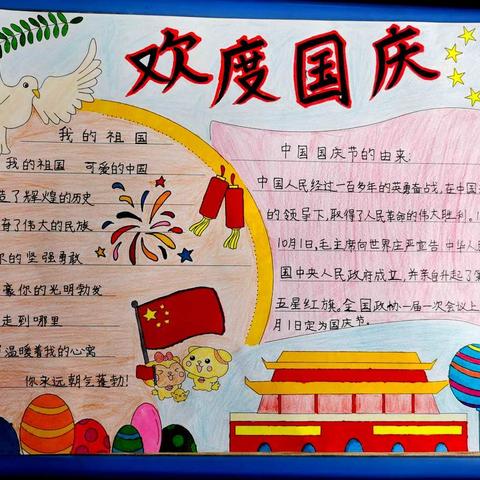 欢度国庆
我的祖国
我的祖国 可爱的中国
造了辉煌的历史
育了伟大的民族
你的坚强勇敢
豪你的光明勃发
走到哪里
温暖着我的心窝
你永远朝气蓬勃!
中国国庆节的由来:
中国人民经过一百多年的英勇奋战,在中国
的领导下,取得了人民革命的伟大胜利。1
10月1日,毛主席向世界庄严宣告中华人民
国中央人民政府成立,并亲自升起了第
五星红旗。全国政协一届一次会议上
月1日定为国庆节。